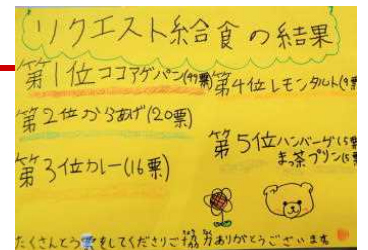 リクエスト給食の結果
第1位ココアアゲパン(49票)
第2位からあげ(20票)
第3位カレー(16票)
第4位レモンタルト(9票
第5位ハンバーグ(5票
まっ茶プリン(5票
たくさんとう票をしてくださりご協力ありがとうございます